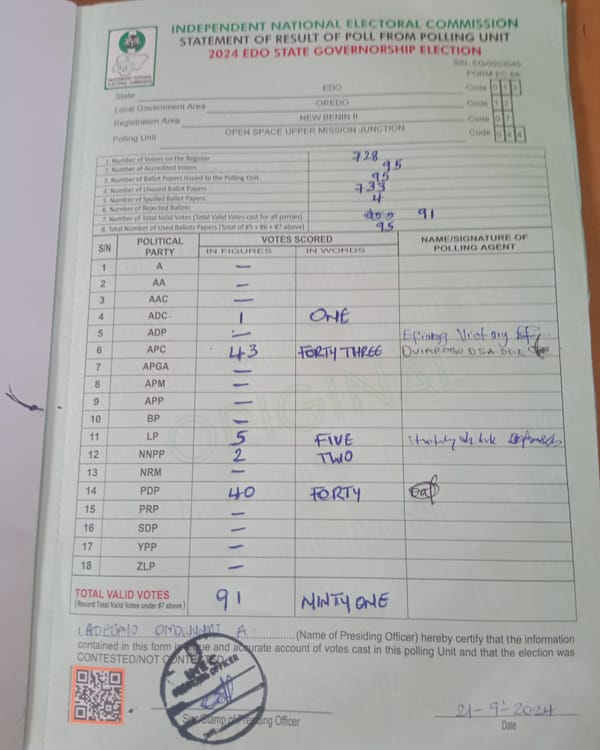 INDEPENDENT NATIONAL ELECTORAL COMMISSION
STATEMENT OF RESULT OF POLL FROM POLLING UNIT
2024 EDO STATE GOVERNORSHIP ELECTION
FORM EC 8A
State EDO Code 0 1 2
Local Government Area OREDO Code 1 2
Registration Area NEW BENIN II Code 0 7
Polling Unit OPEN SPACE UPPER MISSION JUNCTION Code 0 4 4
1. Number of Voters on the Register 728
2. Number of Accredited Voters 95
3. Number of Ballot Papers Issued to the Polling Unit 95
4. Number of Unused Ballot Papers 733
5. Number of Spoiled Ballot Papers
6. Number of Rejected Ballots 4
7. Number of Total Valid Votes (Total Valid Votes cast for all parties) 91
8. Total Number of Used Ballots Papers (Total of #5 + #6 + #7 above) 95
S/N POLITICAL PARTY VOTES SCORED NAME/SIGNATURE OF POLLING AGENT
IN FIGURES IN WORDS
1 A —
2 AA —
3 AAC —
4 ADC 1 ONE
5 ADP —
6 APC 43 FORTY THREE
7 APGA —
8 APM —
9 APP —
10 BP —
11 LP 5 FIVE
12 NNPP 2 TWO
13 NRM —
14 PDP 40 FORTY
15 PRP —
16 SDP —
17 YPP —
18 ZLP —
ORIGINAL
TOTAL VALID VOTES 91 MINTY ONE
(Record Total Valid Votes under #7 above)
I, (Name of Presiding Officer) hereby certify that the information
contained in this form is true and accurate account of votes cast in this polling Unit and that the election was
CONTESTED/NOT CONTESTED
PRESIDING OFFICER
Sign/Stamp of Presiding Officer
21-9-2024
Date